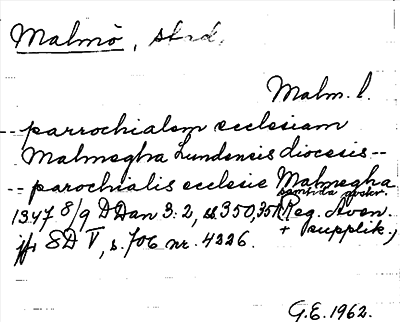 Malmö, stad.
Malm. l.
-- parrochialem ecclesiam
Malmøgha Lundensis diocesis --
-- parochialis ecclesie Malmøgha
samtida avskr.
1347 8/9 DDan 3:2, s. 350, 351 Reg. Aven.
jfr SD V, s. 706 nr. 4226. + supplik.,
G.E. 1962.